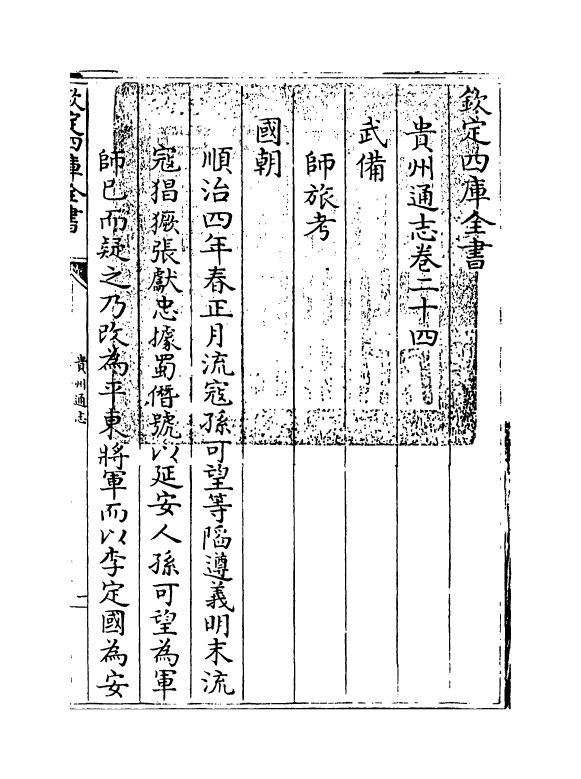 欽定四庫全書
貴州通志卷二十四
武備
師旅考
國朝
順治四年春正月流寇孫可望等䧟遵義明末流
寇猖獗張獻忠據蜀僭號以延安人孫可望為軍
師已而疑之乃改為平東將軍而以李定國為安
欽定四庫全書
貴州通志